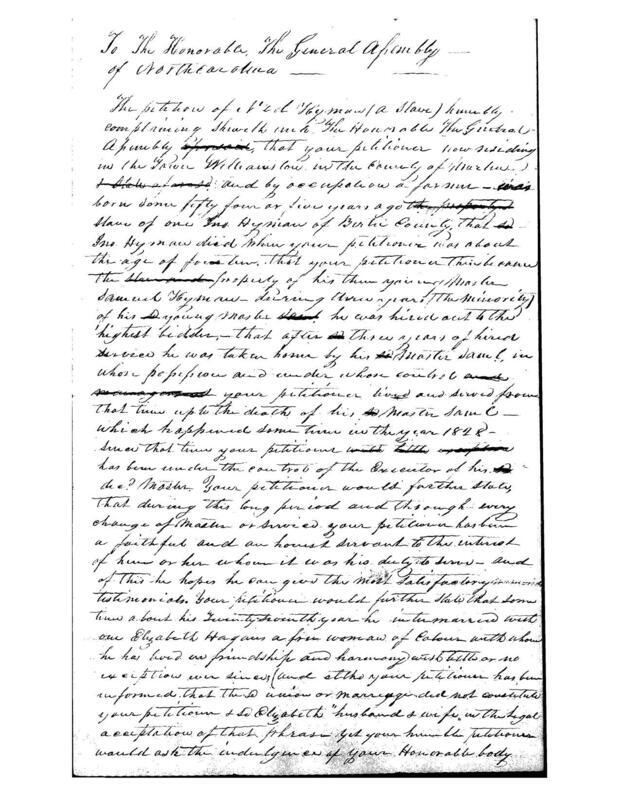 To The Honorable, The General Assembly
of North Carolina
The petition of Ned Hyman (A Slave) humbly
complaining sheweth unto The Honorable The General
Assembly that your petitioner now residing
in the Town Williamston in the County of Martin
and by occupation a farmer — was
born some fifty four or five years ago the property
slave of one Jno. Hyman of Bertie County, that
Jno Hyman died when your petitioner was about
the age of fourteen, that your petitioner then became
the slave and property of his then young Master
Samuel Hyman — during three years (the minority)
of his young Master he was hired out to the
highest bidder, — that after three years of hired
service he was taken home by his Master Saml. in
whose possession and under whose control and
management your petitioner lived and served from
that time up to the death of his Master Saml —
which happened some time in the year 1828 —
since that time your petitioner with little exception
has been under the controls of the Executor of his
decd. Master. Your petitioner would further state,
that during this long period and through every
change of Master or service your petitioner has been
a faithful and an honest servant to the interest
of him or her whom it was his duty to serve — and
of this he hopes he can give the most satisfactory
testimonials. Your petitioner would further state that some
time about his Twenty Seventh year he intermarried with
one Elizabeth Hagans a free woman of Colour with whom
he has lived in friendship and harmony with little or no
exception ever since, (and altho your petitioner has been
informed that the union or marriage did not constitute
your petitioner & sd Elizabeth "husband & wife, in the legal
acceptation of that phrase yet your humble petitioner
would ask the indulgence of your Honorable body